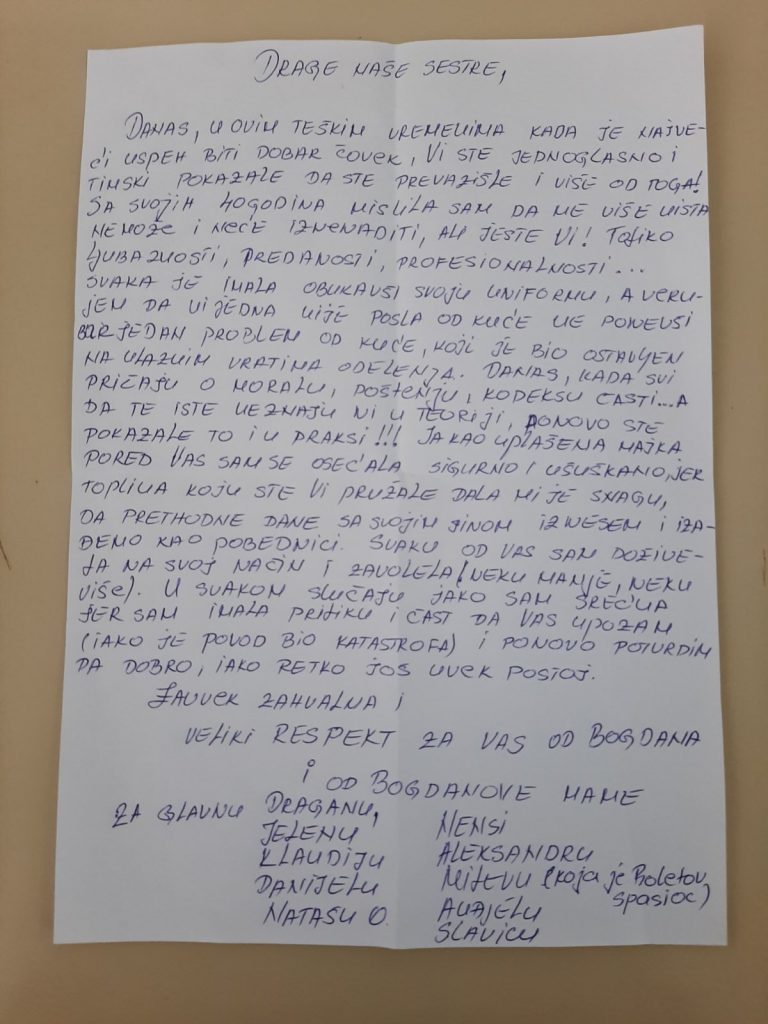 DRAGE NAŠE SESTRE,
DANAS, U OVIM TEŠKIM VREMENIMA KADA JE NAJVE-
ĆI USPEH BITI DOBAR ČOVEK, VI STE JEDNOGLASNO I
TIMSKI POKAZALE DA STE PREVAZIŠLE I VIŠE OD TOGA!
SA SVOJIH 40 GODINA MISLILA SAM DA ME VIŠE NIŠTA
NEMOŽE I NEĆE IZNENADITI, ALI JESTE VI! TOLIKO
LJUBAZNOSTI, PREDANOSTI, PROFESIONALNOSTI...
SVAKA JE IMALA OBUKAVŠI SVOJU UNIFORMU, A VERU-
JEM DA NIJEDNA NIJE POŠLA OD KUĆE NE PONEVŠI
BAR JEDAN PROBLEM OD KUĆE, KOJI JE BIO OSTAVLJEN
NA ULAZNIM VRATIMA ODELENJA. DANAS, KADA SVI
PRIČAJU O MORALU, POŠTENJU, KODEKSU ČASTI...A
DA TE ISTE NEZNAJU NI U TEORIJI, PONOVO STE
POKAZALE TO I U PRAKSI!!! JA KAO UPLAŠENA MAJKA
PORED VAS SAM SE OSEĆALA SIGURNO I UŠUŠKANO, JER
TOPLINA KOJU STE VI PRUŽALE DALA MI JE SNAGU,
DA PRETHODNE DANE SA SVOJIM SINOM IZNESEM I IZA-
ĐEMO KAO POBEDNICI. SVAKU OD VAS SAM DOŽIVE-
LA NA SVOJ NAČIN I ZAVOLELA (NEKU MANJE, NEKU
VIŠE). U SVAKOM SLUČAJU JAKO SAM SREĆNA
JER SAM IMALA PRILIKU I ČAST DA VAS UPOZNAM
(IAKO JE POVOD BIO KATASTROFA) I PONOVO POTVRDIM
DA DOBRO, IAKO RETKO JOŠ UVEK POSTOJI.
ZAUVEK ZAHVALNA I
VELIKI RESPEKT ZA VAS OD BOGDANA
I OD BOGDANOVE MAME
ZA GLAVNU DRAGANU,
JELENU
KLAUDIJU
DANIJELU
NATAŠU O.
NENSI
ALEKSANDRU
MILEVU (koja je Boletov
spasioc)
ANĐELU
SLAVICU